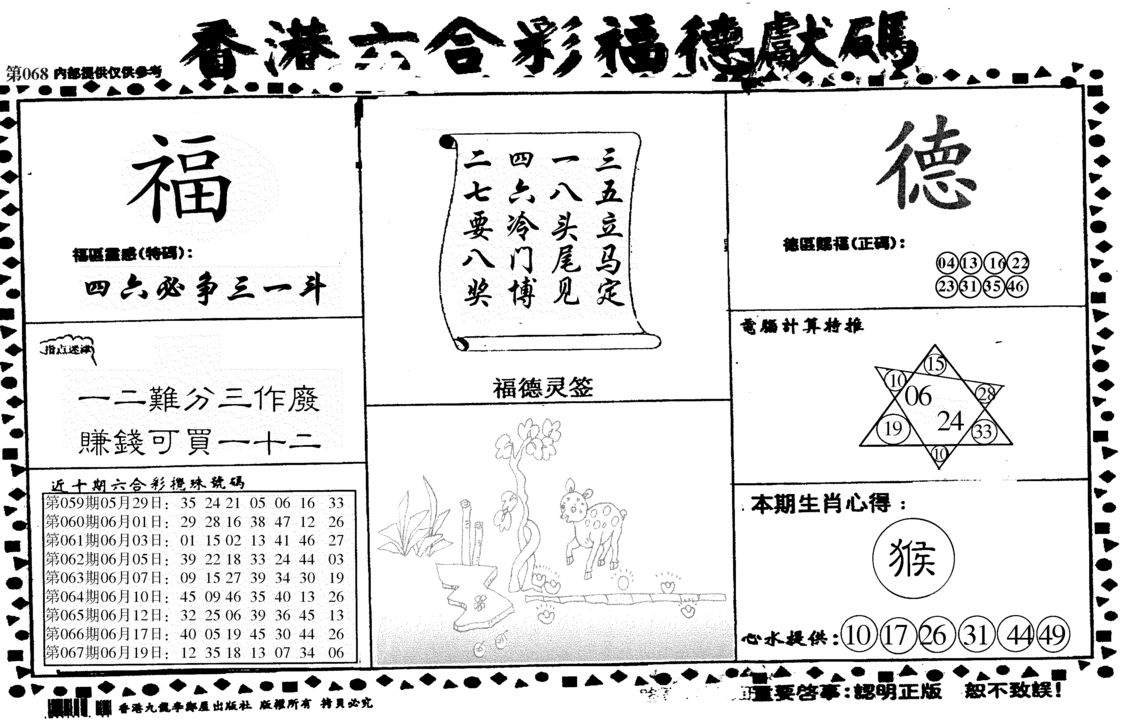 香港六合彩福德獻碼
第068 内部提供仅供参考
福
福區靈感(特碼):
四六必争三一斗
指点迷津
一二難分三作廢
賺錢可買一十二
近十期六合彩攪珠號碼
第059期05月29日: 35 24 21 05 06 16 33
第060期06月01日: 29 28 16 38 47 12 26
第061期06月03日: 01 15 02 13 41 46 27
第062期06月05日: 39 22 18 33 24 44 03
第063期06月07日: 09 15 27 39 34 30 19
第064期06月10日: 45 09 46 35 40 13 26
第065期06月12日: 32 25 06 39 36 45 13
第066期06月17日: 40 05 19 45 30 44 26
第067期06月19日: 12 35 18 13 07 34 06
三五立马定
一八头尾见
四六冷门博
二七要八奖
福德灵签
德
德區賜福(正碼):
04 13 16 22
23 31 35 46
電腦計算特推
15
10 06 28
19 24 33
10
本期生肖心得:
猴
心水提供: 10 17 26 31 44 49
重要啓事:認明正版 恕不致誤!
版權所有 拷貝必究